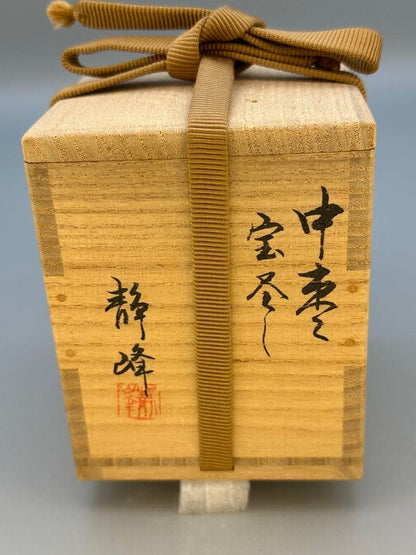 中棗
宝尽し
静峰